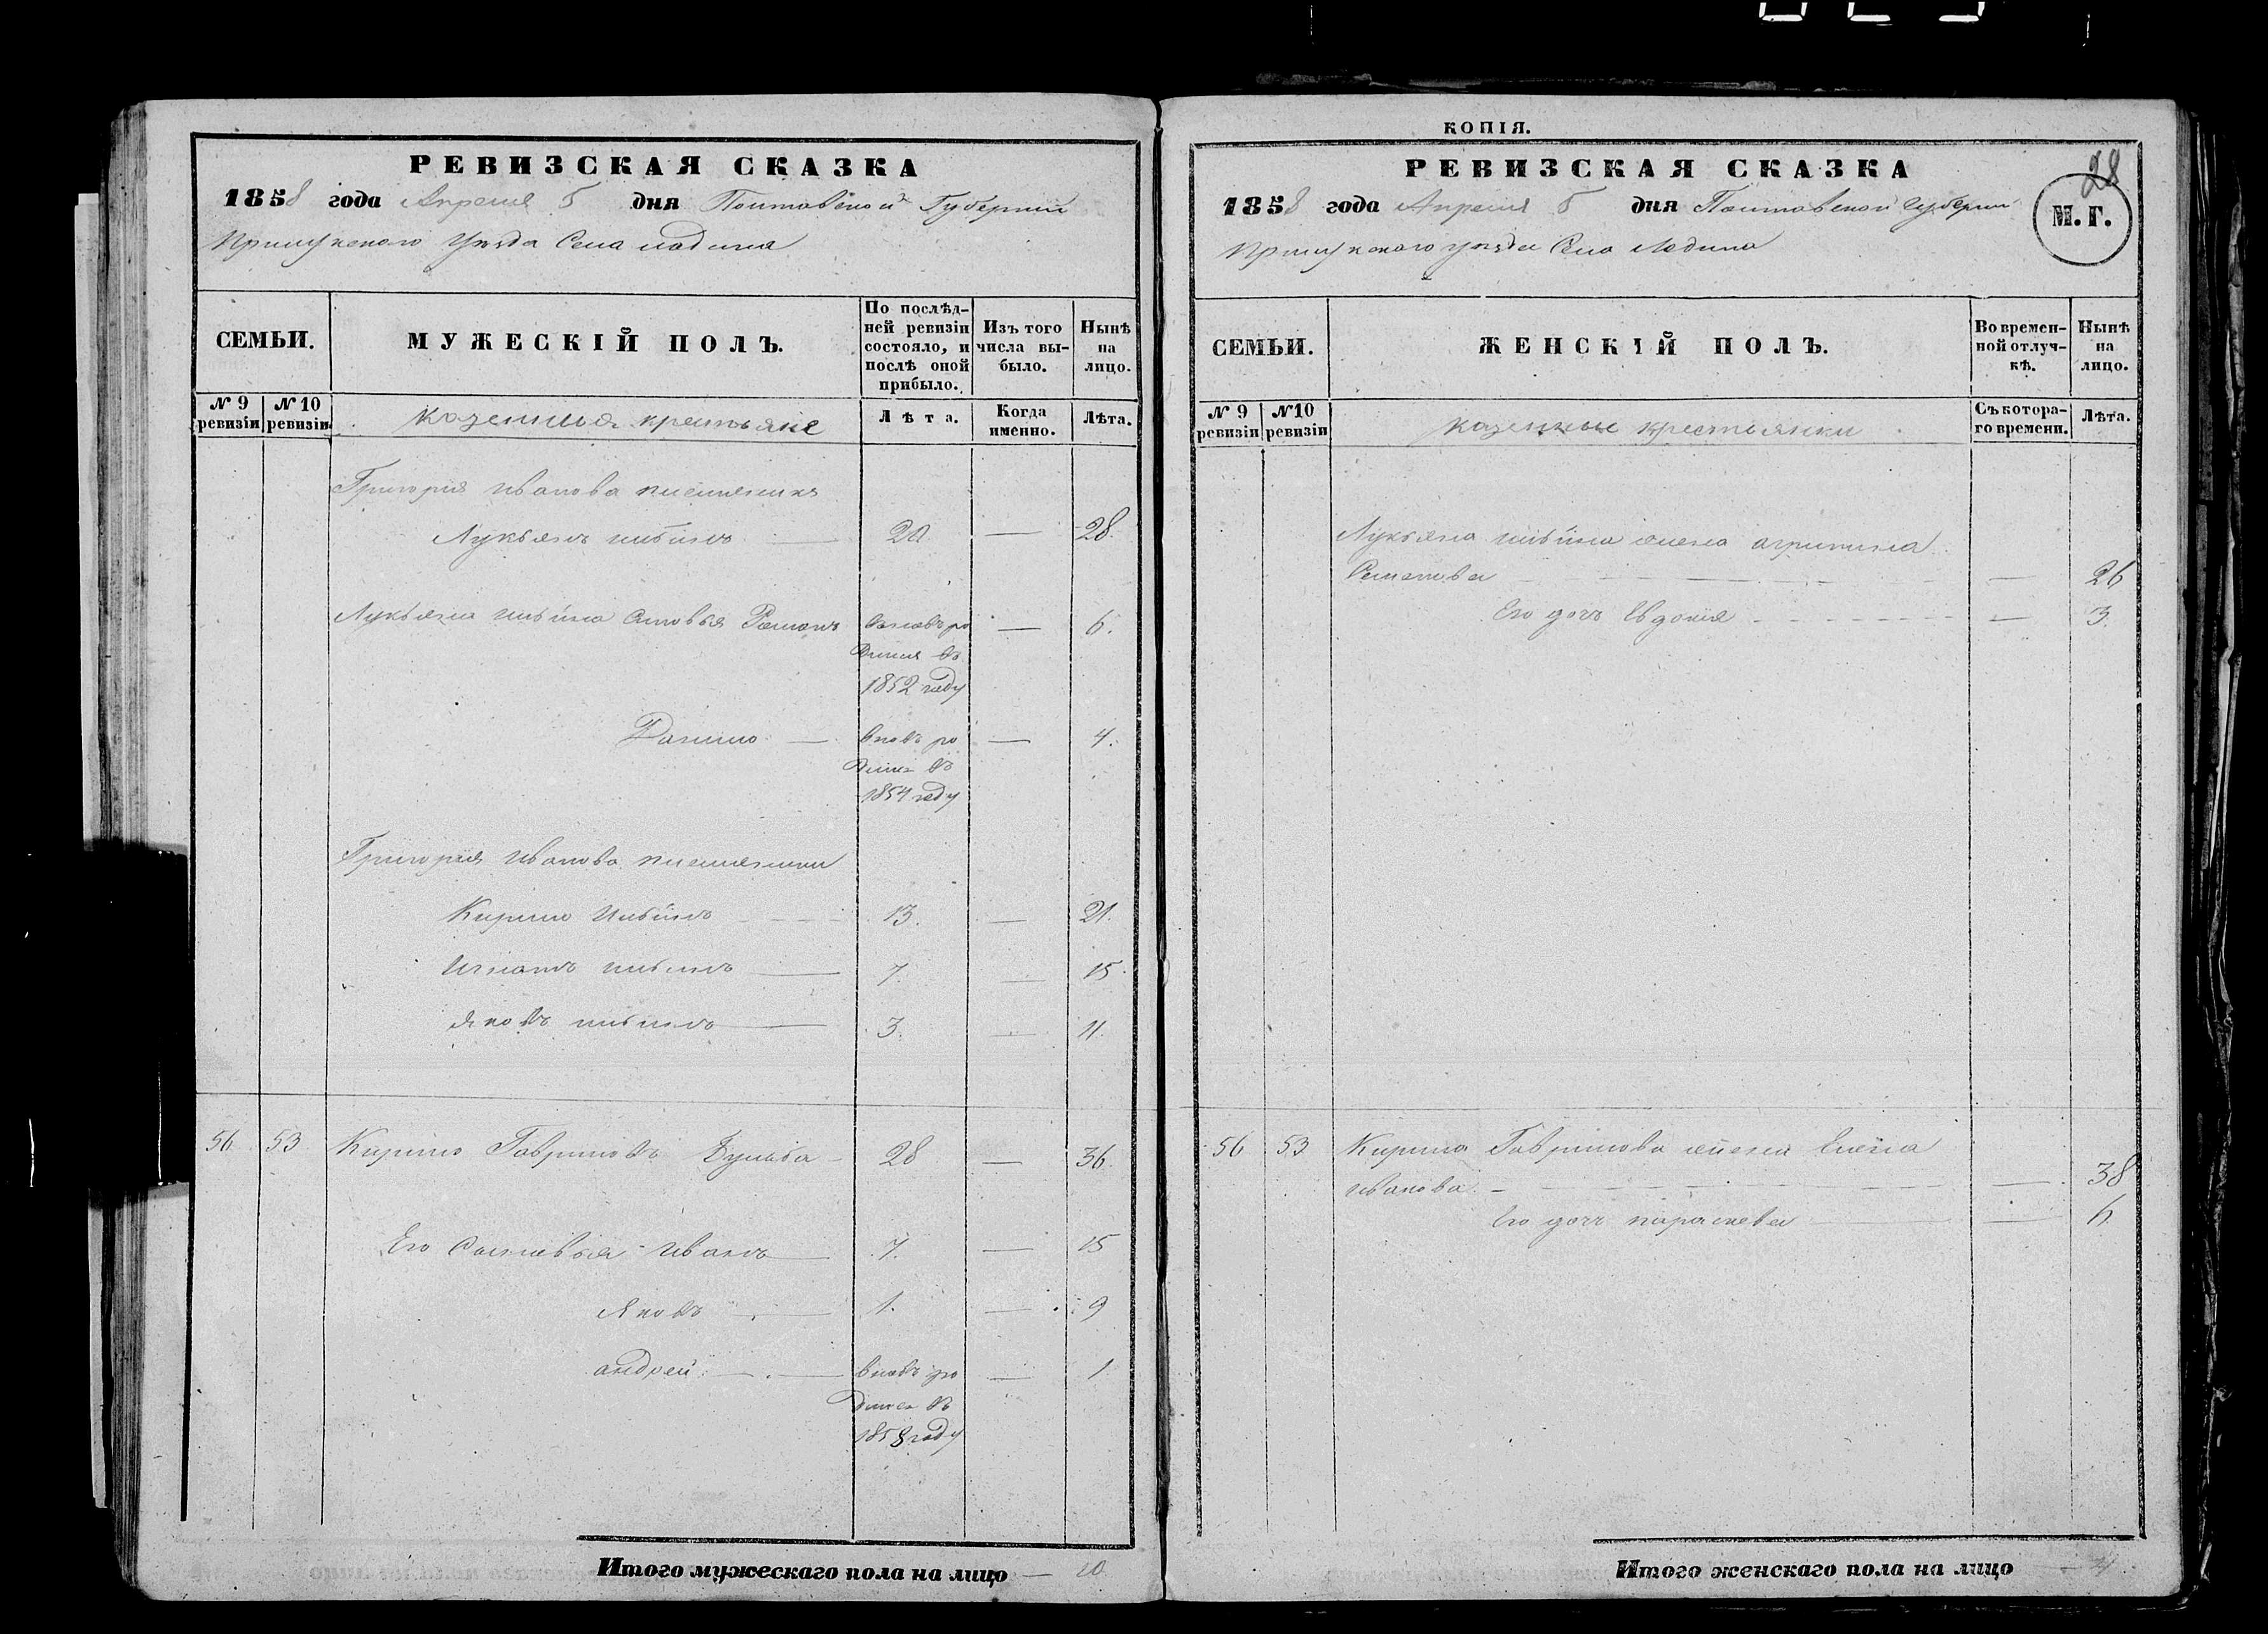 РЕВИЗСКАЯ СКАЗКА
1858 года Апреля 5 дня Полтавской Губернии
Прилуцкого Уезда Села ладина
СЕМЬИ.
МУЖЕСКІЙ ПОЛЪ.
По послѣд-
ней ревизіи
состояло, и
послѣ оной
прибыло.
Изъ того
числа вы-
было.
Нынѣ
на
лицо.
№ 9
ревизіи
№ 10
ревизіи
казенныя крестьяне
Лѣта.
Когда
именно.
Лѣта.
Григорія Иванова племяникъ
Лукьянъ ильинъ 20 — 28.
Лукьяна ильина сыновья Романъ вновь ро — 6.
дился въ
1852 году
Данило — вновь ро — 4.
дился въ
1854 году
Григорія Иванова племяники
Кирило Ильинъ 13. — 21.
Игнатъ ильинъ — 7. — 15.
яковъ ильинъ — 3. — 11.
56 53 Кирило Гавриловъ Бульба — 28 — 36.
Его Сыновья Иванъ — 7. — 15
Яковъ — 1. — 9
андрей — вновь ро — 1
дился въ
1858 году
Итого мужескаго пола на лицо — 10
КОПІЯ.
РЕВИЗСКАЯ СКАЗКА
28
М. Г.
1858 года Апреля 5 дня Полтавской губерніи
Прилуцкого уезда Села Ладина
СЕМЬИ.
ЖЕНСКІЙ ПОЛЪ.
Во времен-
ной отлуч-
кѣ.
Нынѣ
на
лицо.
№ 9
ревизіи
№10
ревизіи
казенные крестьянки
Съ котора-
го времени.
Лѣта.
Лукьяна ильина жена агрипина
Семенова — 26
Его дочь Евдокия — 3.
56 53 Кирила Гаврилова жена Елена
иванова — 38
Его дочь параскева — 6.
Итого женскаго пола на лицо — 4.